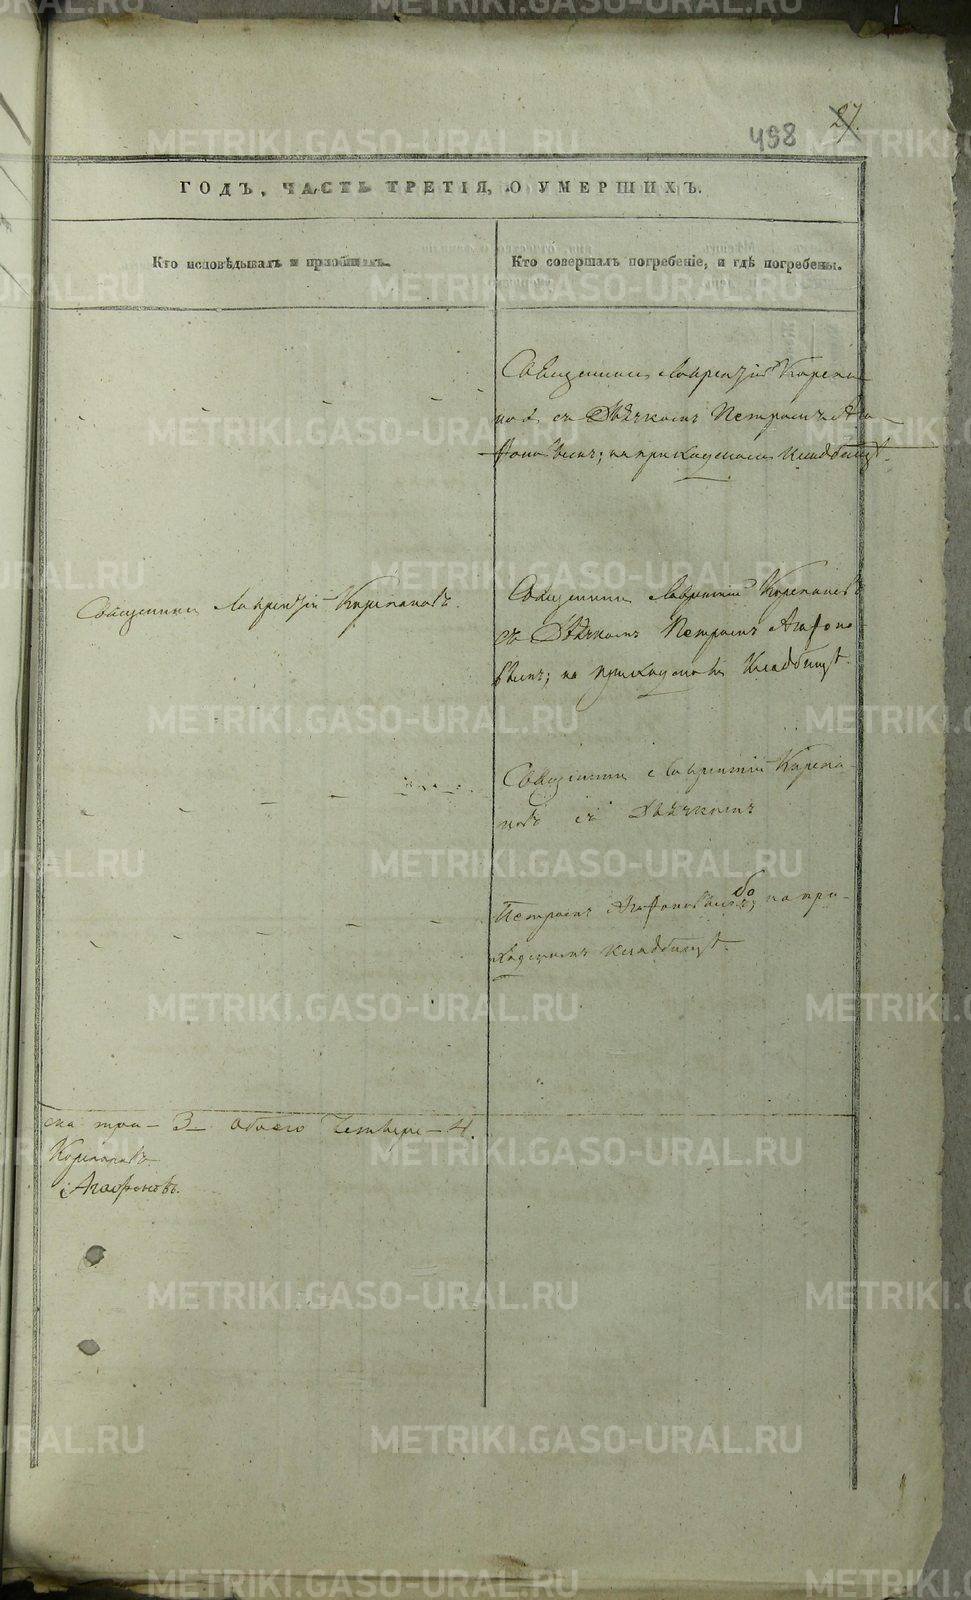 498 27
ГОДЪ, ЧАСТЬ ТРЕТІЯ, О УМЕРШИХЪ.
Кто исповѣдывалъ и пріобщалъ.
Кто совершалъ погребеніе, и гдѣ погребены.
Священникъ Лаврентій Корепа-
новъ съ Дьячкомъ Петромъ Ага-
фоновымъ; на приходскомъ кладбищѣ.
Священникъ Лаврентій Корепановъ.
Священникъ Лаврентій Корепановъ
съ Дьячкомъ Петромъ Агафоно-
вымъ; на приходскомъ кладбищѣ.
Священникъ Лаврентій Корепа-
новъ съ Дьячкомъ
Петромъ Агафоновымъ; на при-
ходскомъ кладбищѣ.
ска три - 3 - обоего четверо - 4.
Корепановъ
Агафоновъ.
METRIKI.GASO-URAL.RU